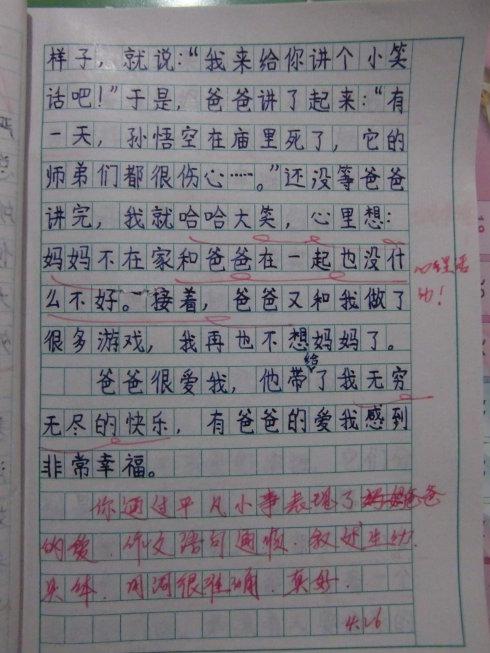 样子，就说：“我来给你讲个小笑
话吧！”于是，爸爸讲了起来：“有
一天，孙悟空在庙里死了，它的
师弟们都很伤心……。”还没等爸爸
讲完，我就哈哈大笑，心里想：
妈妈不在家和爸爸在一起也没什
么不好。接着，爸爸又和我做了
很多游戏，我再也不想妈妈了。
爸爸很爱我，他带给了我无穷
无尽的快乐，有爸爸的爱我感到
非常幸福。
心里话
你通过平凡小事表现了爸爸
的爱．作文语句通顺．叙述生动．
具体．用词很准确．真好．
4.26